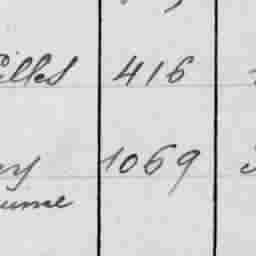 illes 416
ey 1069
ume